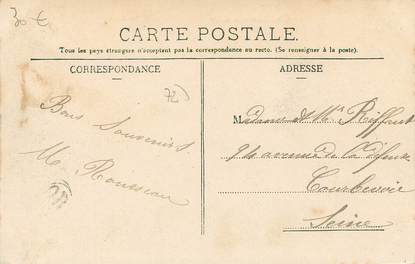 30 €
CARTE POSTALE.
Tous les pays étrangers n'acceptent pas la correspondance au recto. (Se renseigner à la poste).
CORRESPONDANCE
ADRESSE
72
Bons Souvenirs
M. Rousseau
Madame et Mr Riffaut
94 avenue de la Défense
Courbevoie
Seine